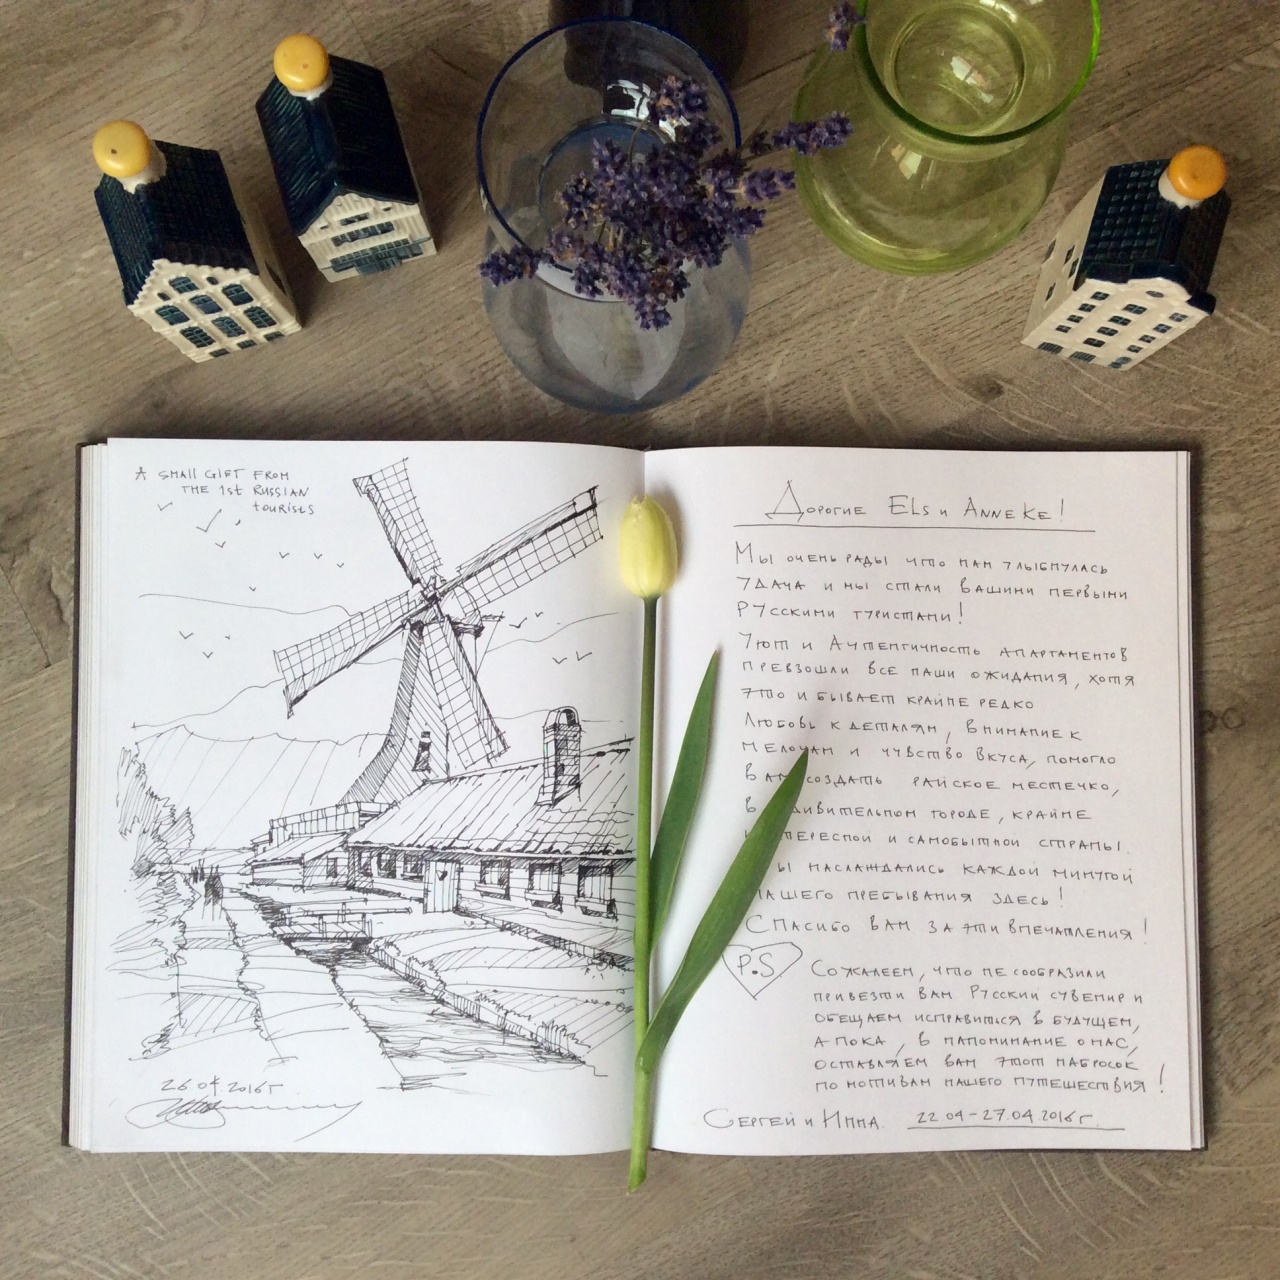 A SMALL GIFT FROM
THE 1st RUSSIAN
tourists
26.04.2016г
Дорогие Els и Anneke!
Мы очень рады что нам улыбнулась
удача и мы стали вашими первыми
русскими туристами!
Уют и Аутентичность апартаментов
превзошли все наши ожидания, хотя
это и бывает крайне редко
Любовь к деталям, внимание к
мелочам и чувство вкуса, помогло
вам создать райское местечко,
в удивительном городе, крайне
интересной и самобытной страны.
Мы наслаждались каждой минутой
нашего пребывания здесь!
Спасибо вам за эти впечатления!
P.S
Сожалеем, что не сообразили
привезти вам Русский сувенир и
обещаем исправиться в будущем,
а пока, в напоминание о нас,
оставляем вам этот набросок
по мотивам нашего путешествия!
Сергей и Инна 22.04-27.04.2016г.